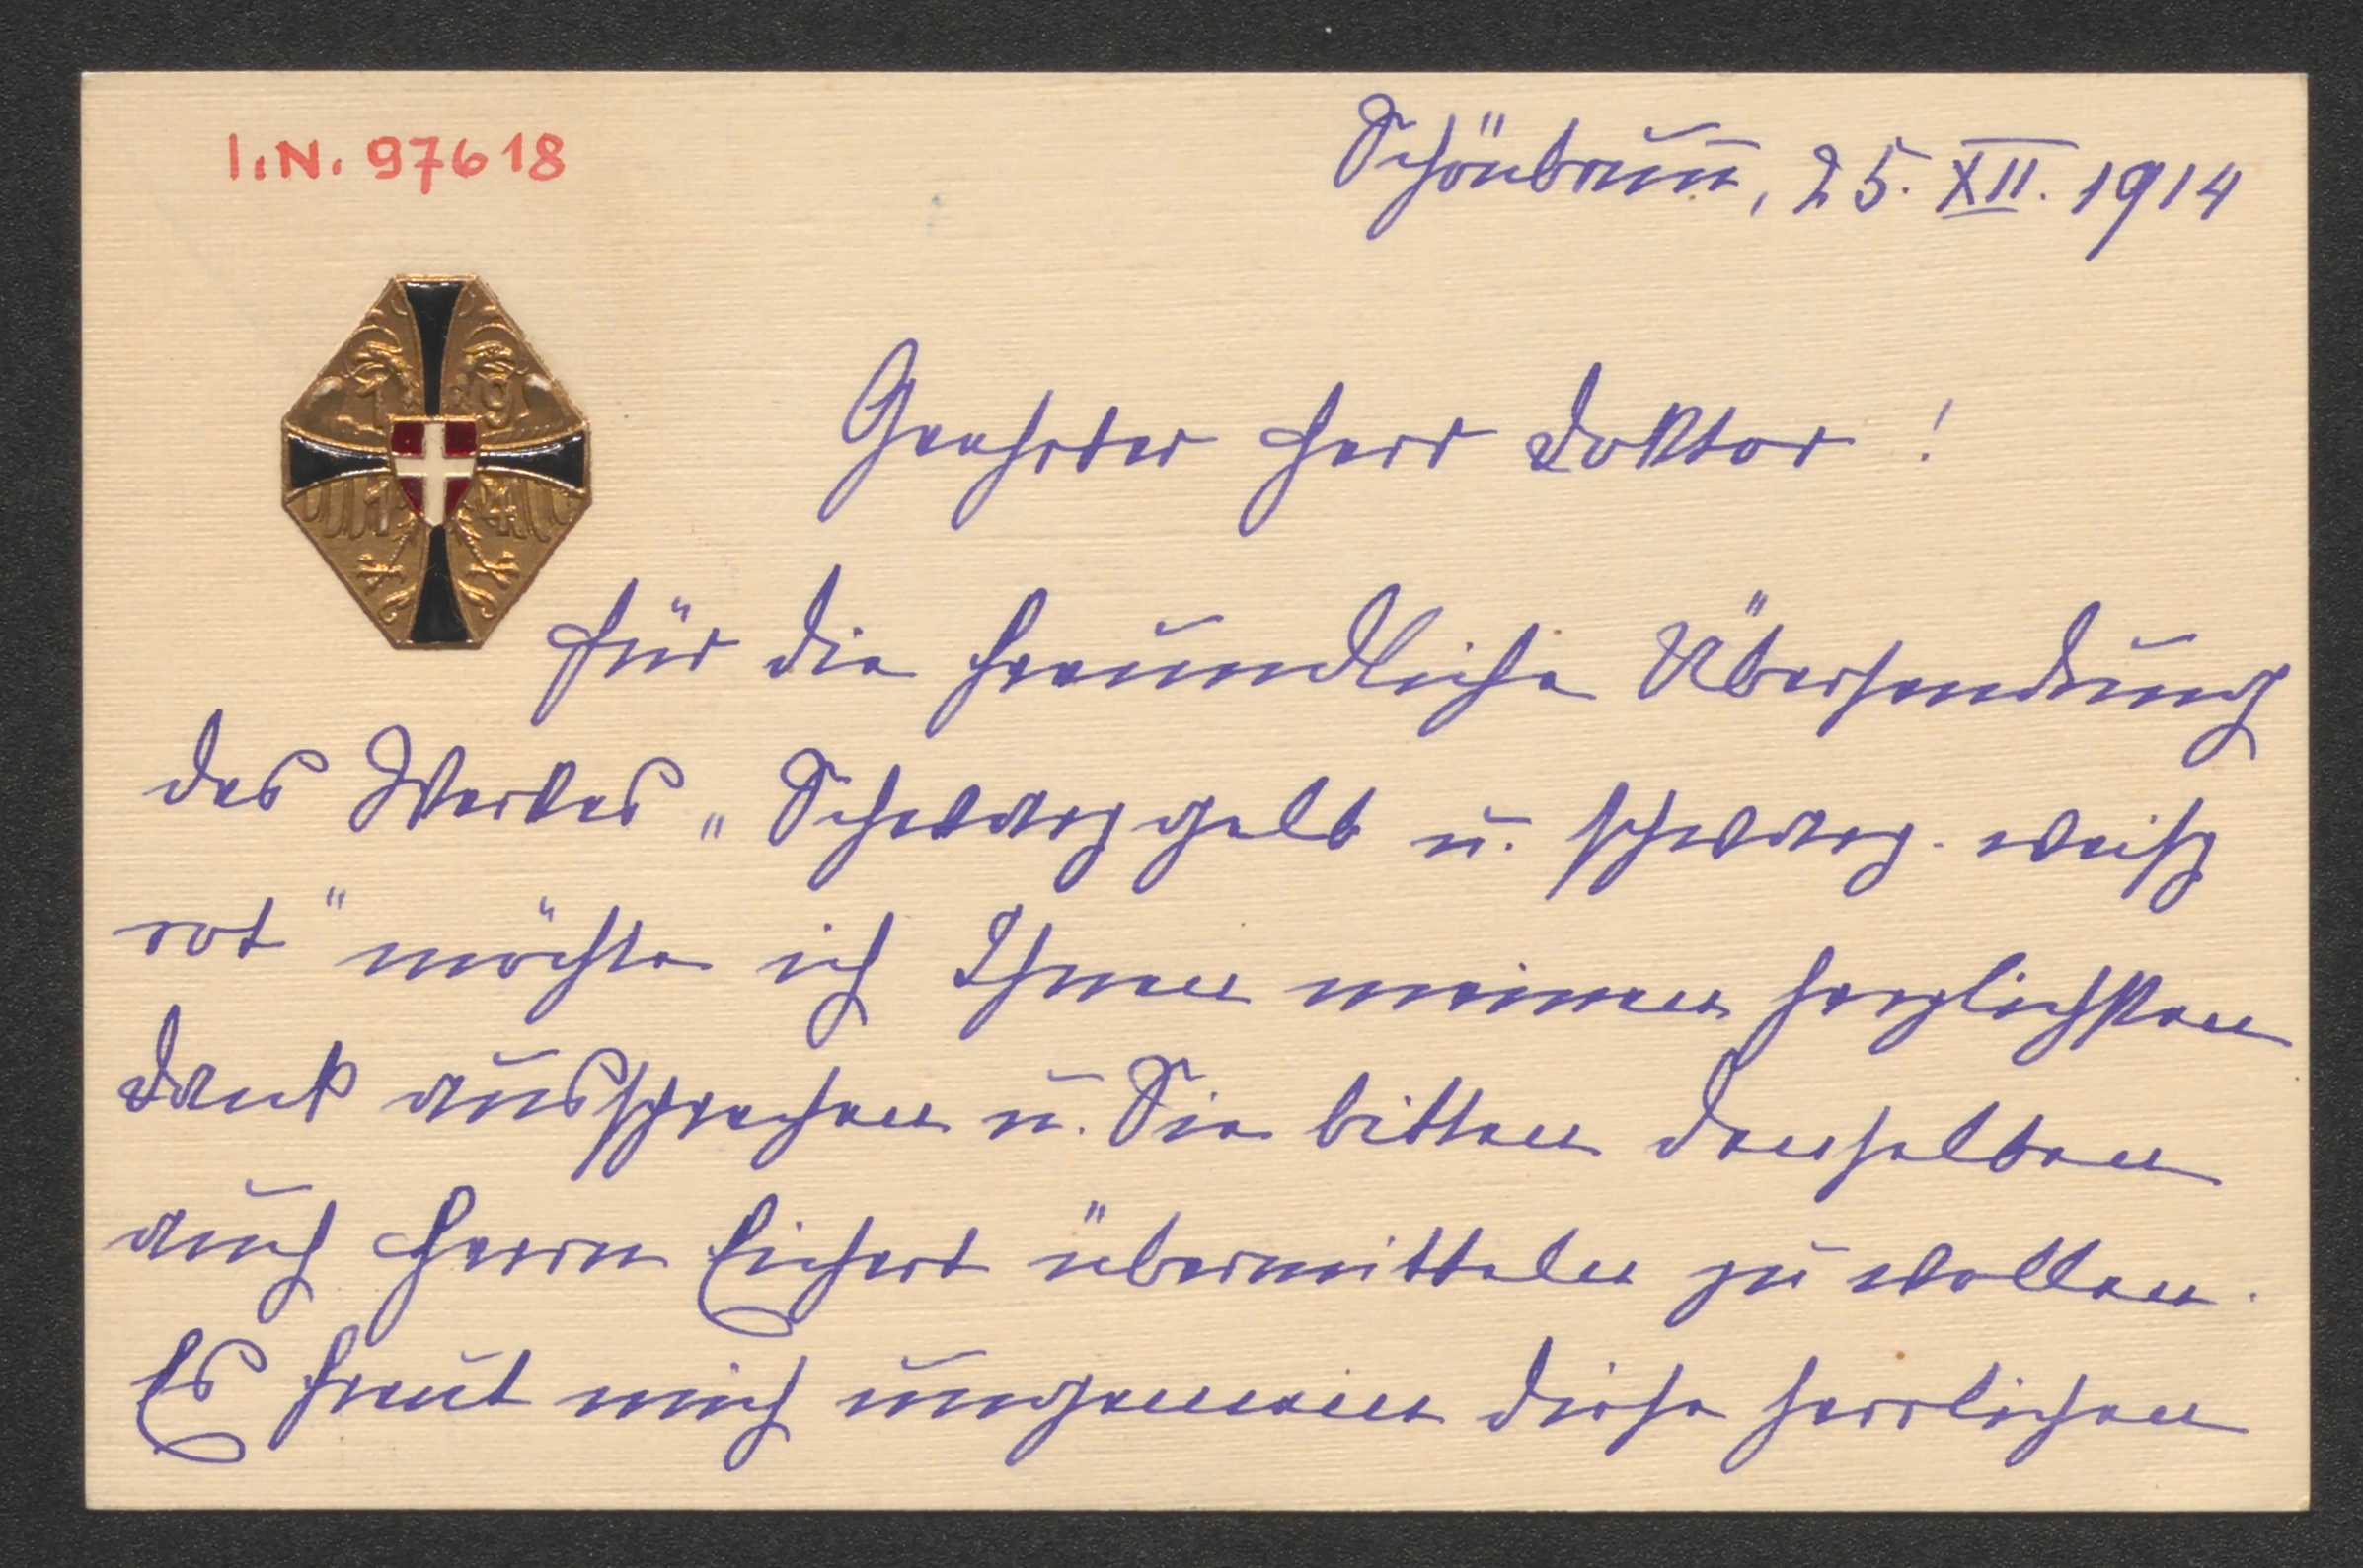 I.N. 97618
Schönbrunn, 25. XII. 1914
19
14
Geehrter Herr Doktor!
Für die freundliche Übersendung
des Werkes „Schwarzgelb u. schwarz-weiß
rot" möchte ich Ihnen meinen herzlichsten
Dank aussprechen u. Sie bitten denselben
auch Herrn Eichert übermitteln zu wollen.
Es freut mich ungemein diese herrlichen